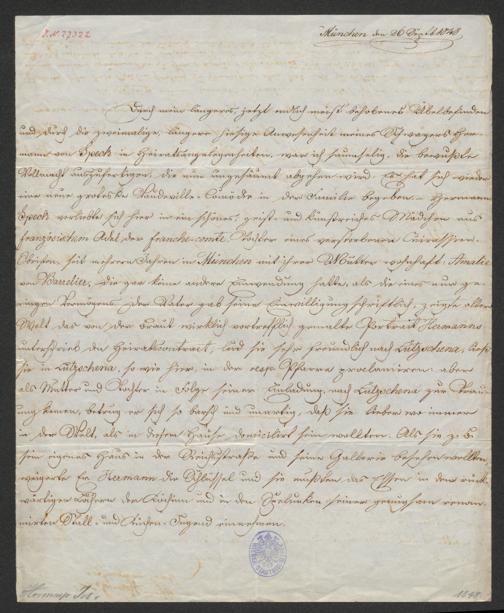 I.N. 79322
München den 26 Septb 1848
Durch mein längeres, jetzt endlich meist behobenes Übelbefinden
und durch die zweimalige, längere hiesige Anwesenheit meines Schwagers Her-
mann von Speck in Heirathsangelegenheiten, war ich saumselig, die bewußte
Vollmacht auszufertigen, die nun ungesäumt abgehen wird. Es hat sich wieder
eine neue groteske Vaudeville-Comödie in der Familie begeben. Hermann
Speck verliebte sich hier in ein schönes, geist- und kunstreiches Mädchen aus
französischem Adel, der franche-comté, Tochter eines verstorbenen Cuirassier-
Obristen, seit mehren Jahren in München mit ihrer Mutter wohnhaft: Amalie
von Bourdier, die gar keine andere Einwendung hatte, als die eines nur ge-
ringen Vermögens. Der Vater gab seine Einwilligung schriftlich, zeigte aller
Welt das von der Braut wirklich vortrefflich gemalte Portrait Hermanns
unterschrieb den Heirathscontract, lud sie sehr freundlich nach Lützschena, ließ
sie in Lützschena, so wie hier, in der Pfarre proclamiren. aber
als Mutter und Tochter in Folge seiner Einladung nach Lützschena zur Trau-
ung kamen, betrug er sich so barsch und unartig, daß sie lieber wo immer
in der Welt, als in diesem Hause, domicilirt sein wollten. Als sie z. B.
sein eigenes Haus in der Reichsstraße und seine Gallerie besehen wollten,
weigerte er Hermann die Schlüssel und sie mußten das Essen in den
der Köchin und in den Spelunken seiner genugsam renom-
mirten Stall- und Küchen-Jugend einnehmen.
1848